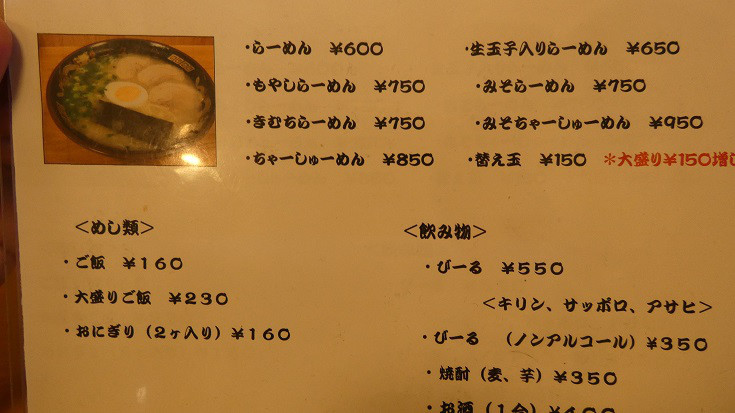 ・らーめん ¥600
・もやしらーめん ¥750
・きむちらーめん ¥750
・ちゃーしゅーめん ¥850
・生玉子入りらーめん ¥650
・みそらーめん ¥750
・みそちゃーしゅーめん ¥950
・替え玉 ¥150 ＊大盛り¥150増し
＜めし類＞
・ご飯 ¥160
・大盛りご飯 ¥230
・おにぎり（2ヶ入り）¥160
＜飲み物＞
・びーる ¥550
＜キリン、サッポロ、アサヒ＞
・びーる （ノンアルコール）¥350
・焼酎（麦、芋）¥350
・お酒（1合）